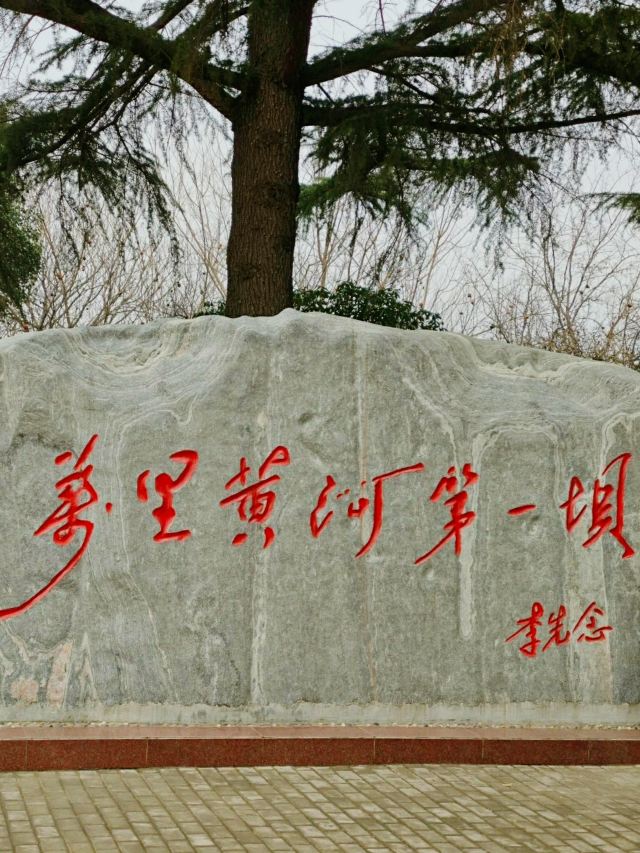 萬里黄河第一坝
李先念